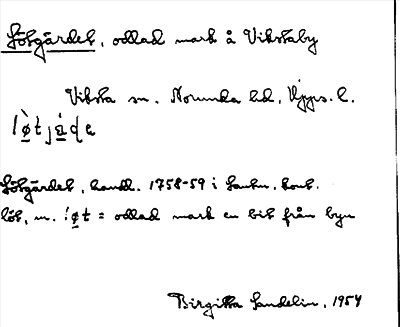 Lötgärdet, odlad mark å Vikstaby
Viksta sn. Norunda hd, Upps. l.
lø̀tjäḍe
Lötgärdet, handl. 1758-59 i Lantm. kont.
löt, m. 'løt = odlad mark en bit från byn
Birgitta Sandelin, 1954